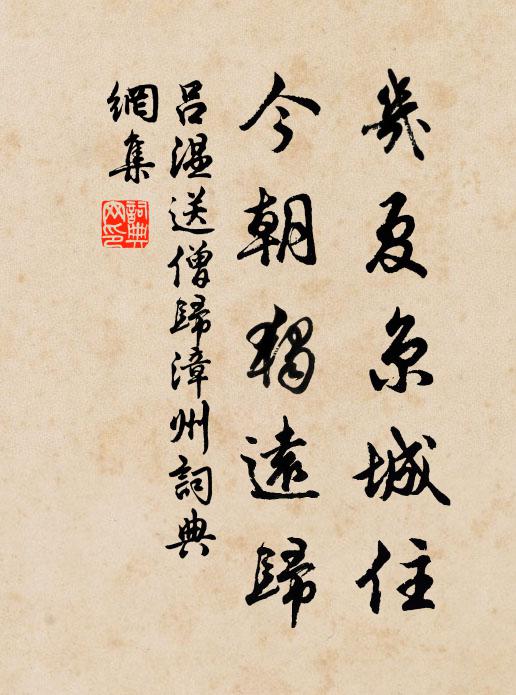 幾夏京城住
今朝獨遠歸
吕溫送僧歸漳州詞典
網集
詞典
网印